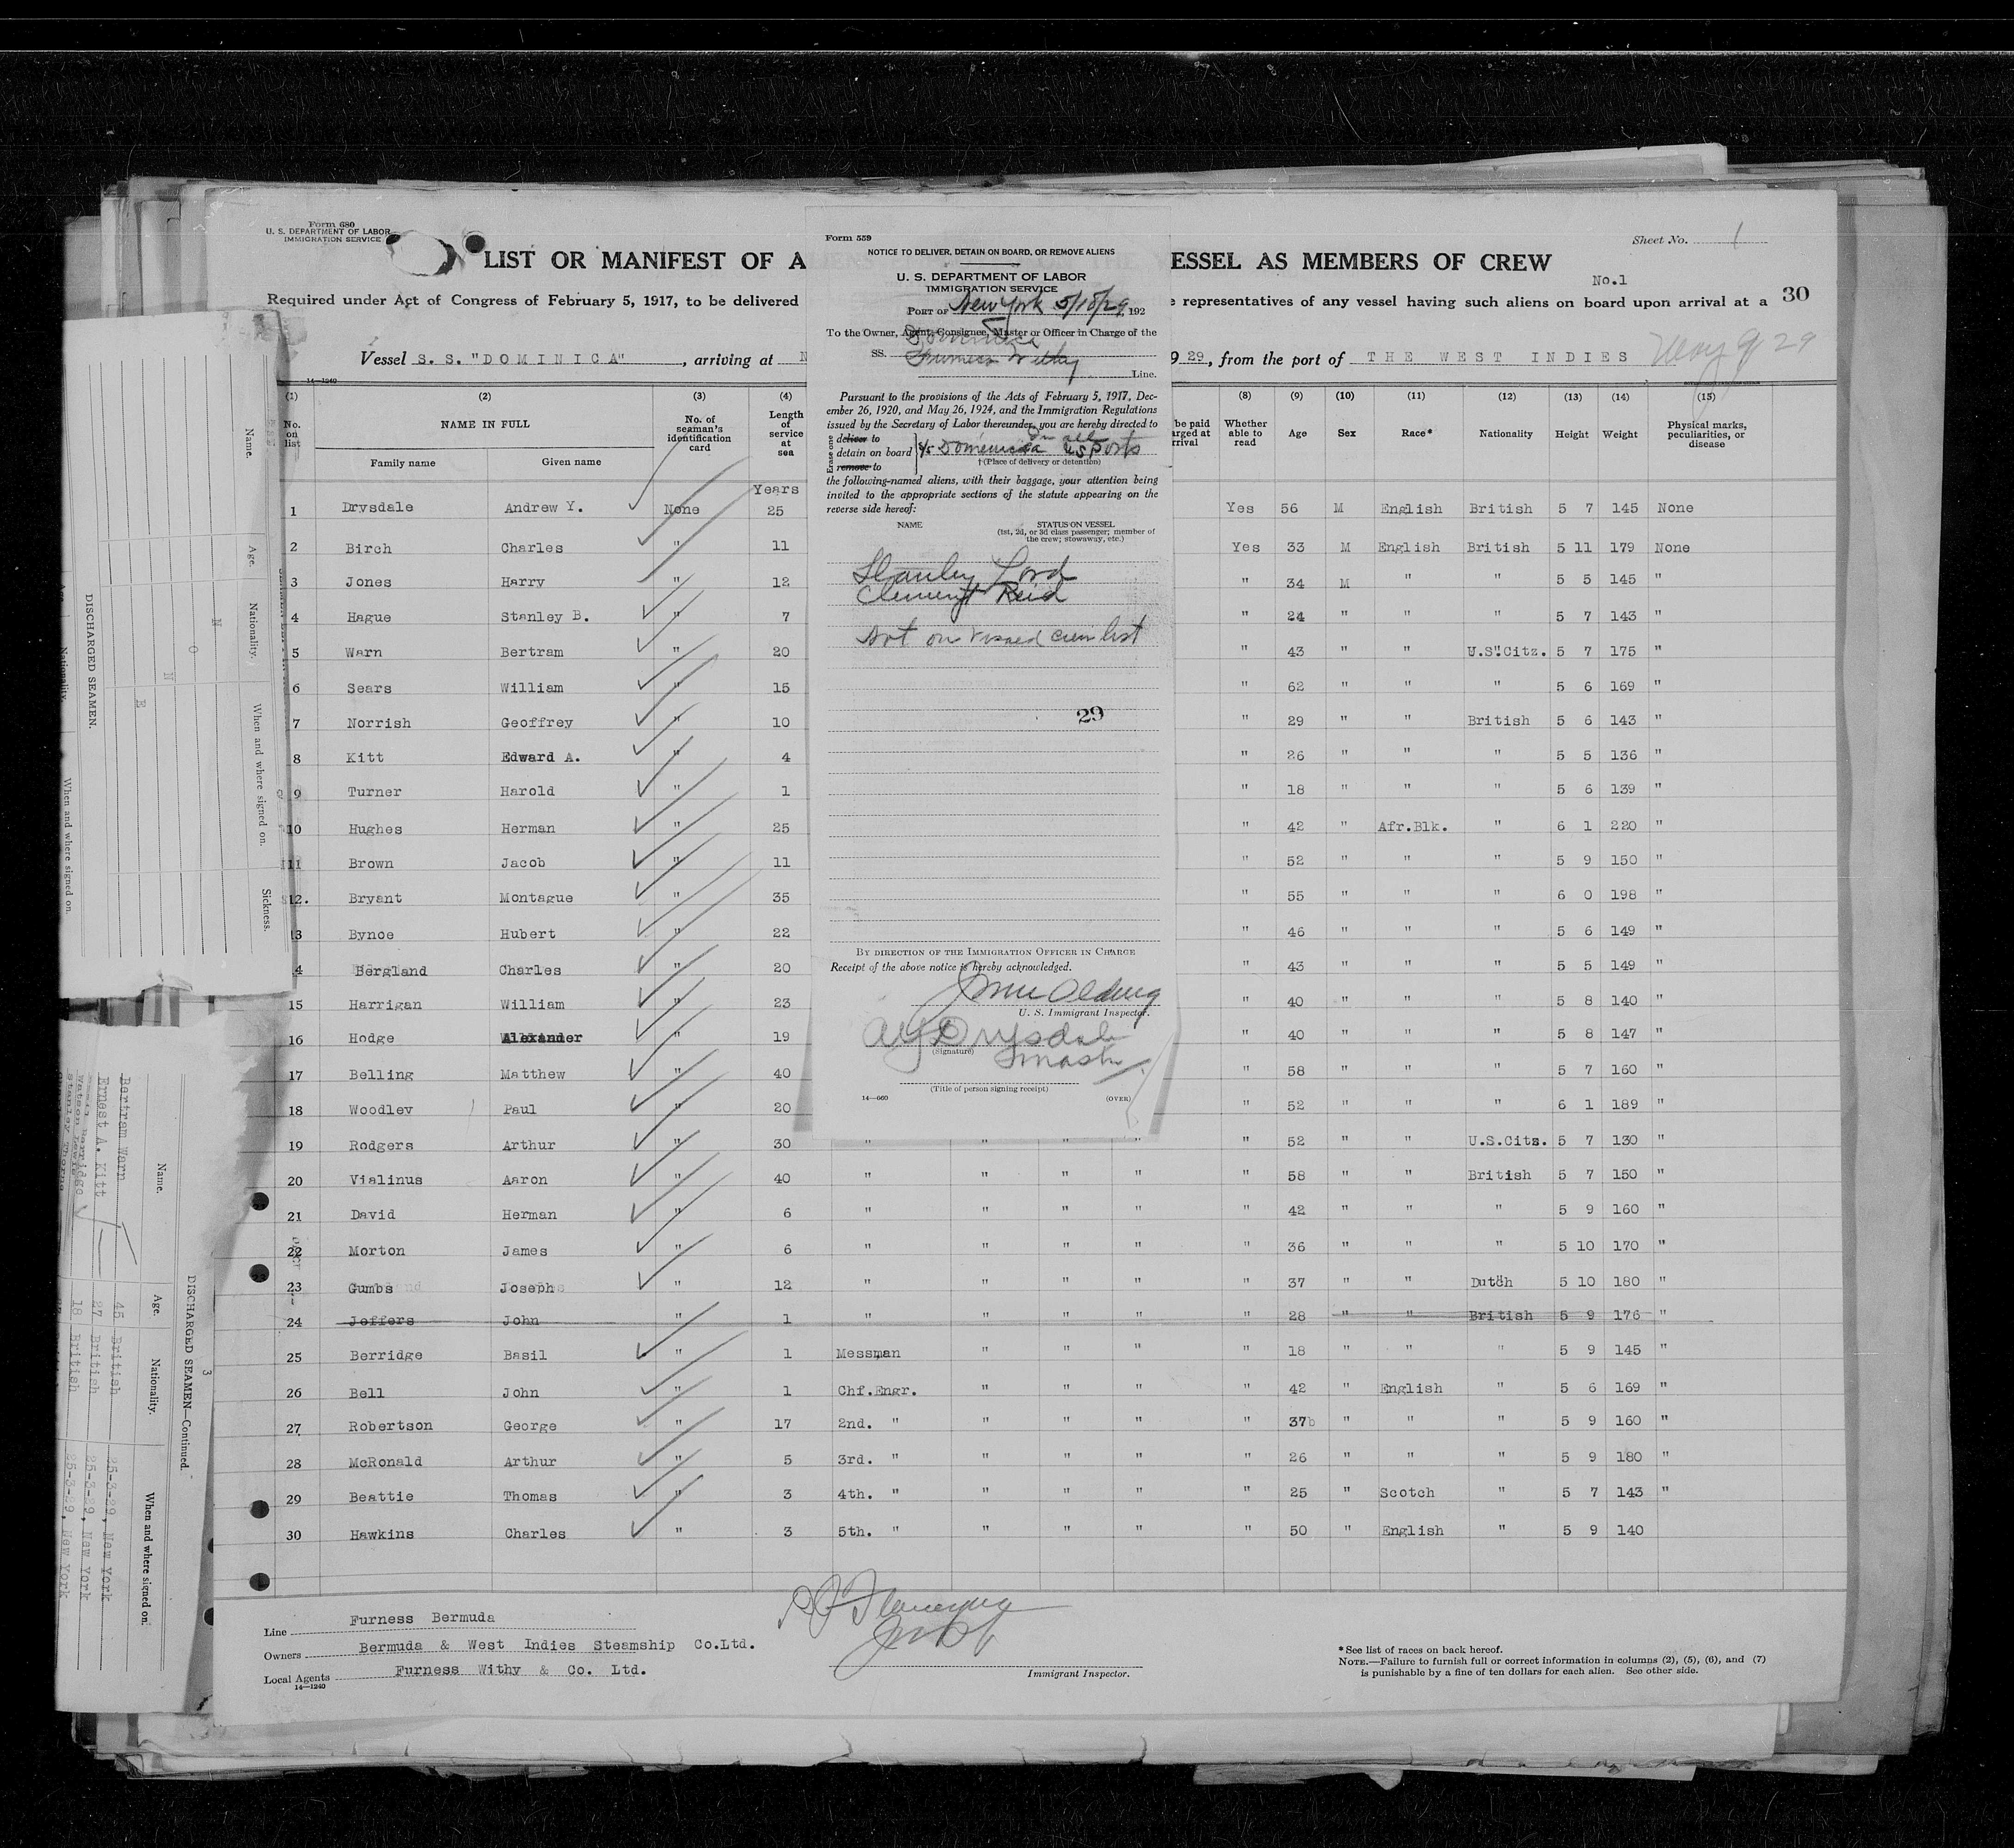 Form 680
U. S. DEPARTMENT OF LABOR
IMMIGRATION SERVICE
LIST OR MANIFEST OF A
ESSEL AS MEMBERS OF CREW
Sheet No. 1
No.1
Required under Act of Congress of February 5, 1917, to be delivered
e representatives of any vessel having such aliens on board upon arrival at a
30
Vessel S. S. "DOMINICA", arriving at N
9 29, from the port of THE WEST INDIES May 9 29
14—1240
(1) (2) (3) (4) (8) (9) (10) (11) (12) (13) (14) (15)
No. on list
NAME IN FULL
Family name Given name
No. of seaman's identification card
Length of service at sea
be paid
arged at
rrival
Whether able to read
Age Sex Race* Nationality Height Weight
Physical marks, peculiarities, or disease
Years
1 Drysdale Andrew Y. None 25 Yes 56 M English British 5 7 145 None
2 Birch Charles " 11 Yes 33 M English British 5 11 179 None
3 Jones Harry " 12 " 34 M " " 5 5 145 "
4 Hague Stanley B. " 7 " 24 " " " 5 7 143 "
5 Warn Bertram " 20 " 43 " " U.S.Citz. 5 7 175 "
6 Sears William " 15 " 62 " " " 5 6 169 "
7 Norrish Geoffrey " 10 " 29 " " British 5 6 143 "
8 Kitt Edward A. " 4 " 26 " " " 5 5 136 "
9 Turner Harold " 1 " 18 " " " 5 6 139 "
10 Hughes Herman " 25 " 42 " Afr.Blk. " 6 1 220 "
11 Brown Jacob " 11 " 52 " " " 5 9 150 "
12. Bryant Montague " 35 " 55 " " " 6 0 198 "
13 Bynoe Hubert " 22 " 46 " " " 5 6 149 "
4 Bergland Charles " 20 " 43 " " " 5 5 149 "
15 Harrigan William " 23 " 40 " " " 5 8 140 "
16 Hodge Alexander " 19 " 40 " " " 5 8 147 "
17 Belling Matthew " 40 " 58 " " " 5 7 160 "
18 Woodley Paul " 20 " 52 " " " 6 1 189 "
19 Rodgers Arthur " 30 " " " " " 52 " " U.S.Cits. 5 7 130 "
20 Vialinus Aaron " 40 " " " " " 58 " " British 5 7 150 "
21 David Herman " 6 " " " " " 42 " " " 5 9 160 "
22 Morton James " 6 " " " " " 36 " " " 5 10 170 "
23 Gumbs Joseph " 12 " " " " " 37 " " Dutch 5 10 180 "
24 Jeffers John " 1 " " " " " 28 " " British 5 9 176 "
25 Berridge Basil " 1 Messman " " " " 18 " " " 5 9 145 "
26 Bell John " 1 Chf.Engr. " " " " 42 " English " 5 6 169 "
27 Robertson George " 17 2nd. " " " " " 37 " " " 5 9 160 "
28 McRonald Arthur " 5 3rd. " " " " " 26 " " " 5 9 180 "
29 Beattie Thomas " 3 4th. " " " " " 25 " Scotch " 5 7 143 "
30 Hawkins Charles " 3 5th. " " " " " 50 " English " 5 9 140
Line Furness Bermuda
Owners Bermuda & West Indies Steamship Co.Ltd.
Local Agents Furness Withy & Co. Ltd.
14—1240
Immigrant Inspector.
*See list of races on back hereof.
NOTE.—Failure to furnish full or correct information in columns (2), (5), (6), and (7)
is punishable by a fine of ten dollars for each alien. See other side.
Form 559
NOTICE TO DELIVER, DETAIN ON BOARD, OR REMOVE ALIENS
U. S. DEPARTMENT OF LABOR
IMMIGRATION SERVICE
PORT OF New York 5/10/29, 192
To the Owner, Agent, Consignee, Master or Officer in Charge of the
SS. Dominica
Furness Withy Line.
Pursuant to the provisions of the Acts of February 5, 1917, Dec-
ember 26, 1920, and May 26, 1924, and the Immigration Regulations
issued by the Secretary of Labor thereunder, you are hereby directed to
Erase one
deliver to
detain on board
remove to
S/S Dominica on all US Ports
† (Place of delivery or detention)
the following-named aliens, with their baggage, your attention being
invited to the appropriate sections of the statute appearing on the
reverse side hereof:
NAME
STATUS ON VESSEL
(1st, 2d, or 3d class passenger; member of
the crew; stowaway, etc.)
Stanley Lord
Clement Reid
Not on visaed crew list
29
BY DIRECTION OF THE IMMIGRATION OFFICER IN CHARGE
Receipt of the above notice is hereby acknowledged.
U. S. Immigrant Inspector.
A Y Drysdale
(Signature)
Master
(Title of person signing receipt)
14—660
(OVER)
DISCHARGED SEAMEN.
Name. Age. Nationality. When and where signed on. Sickness.
N O N E
Nationality. When and where signed on.
3
DISCHARGED SEAMEN—Continued.
Name. Age. Nationality. When and where signed on.
Bertram Warn 45 British 25-3-29, New York
Ernest A. Kitt 27 British 25-3-29, New York
Berridge 18 British 25-3-29, New York
Watson Lewis
Stanley Thorne